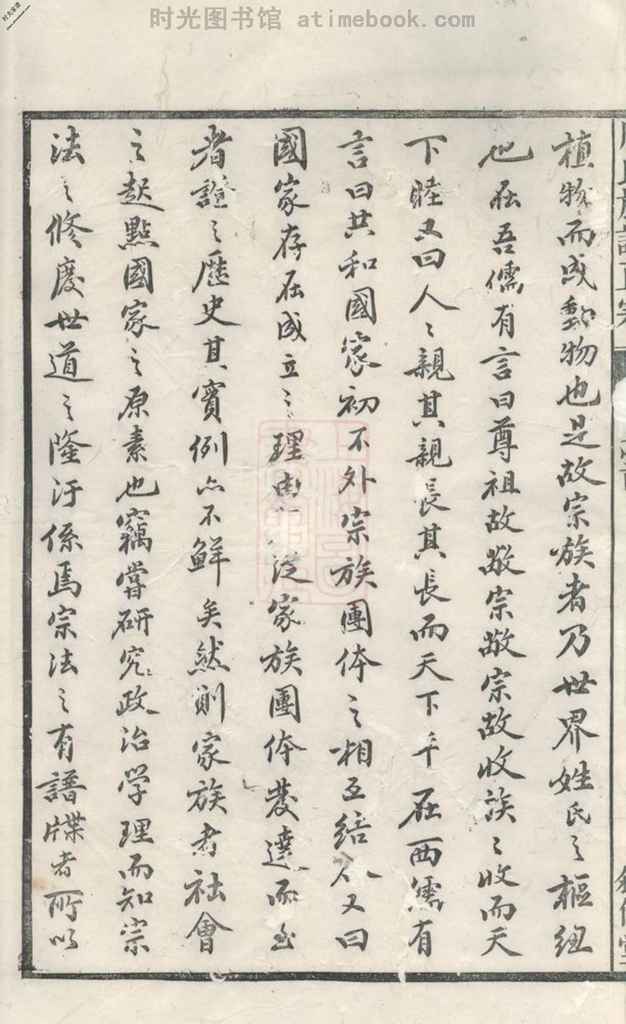 时光图书馆 atimebook.com
植物而成動物也是故宗族者乃世界姓氏之樞紐
也在吾儒有言曰尊祖故敬宗敬宗故收族〻收而天
下睦又曰人〻親其親長其長而天下平在西儒有
言曰共和國家初不外宗族團体之相互結合又曰
國家存在成立之理由從家族團体發達而出
者證之歷史其實例亦不鮮矣然則家族者社會
之起點國家之原素也竊嘗研究政治学理而知宗
法之修廢世道之隆汙係焉宗法之有譜牒者所以